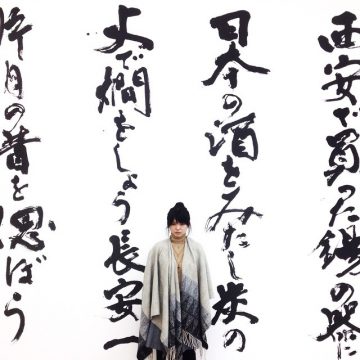 西安で買った錫の器に
日本の酒をみたし炭の
火で燗をしよう長安一
片月の昔を偲ぼう